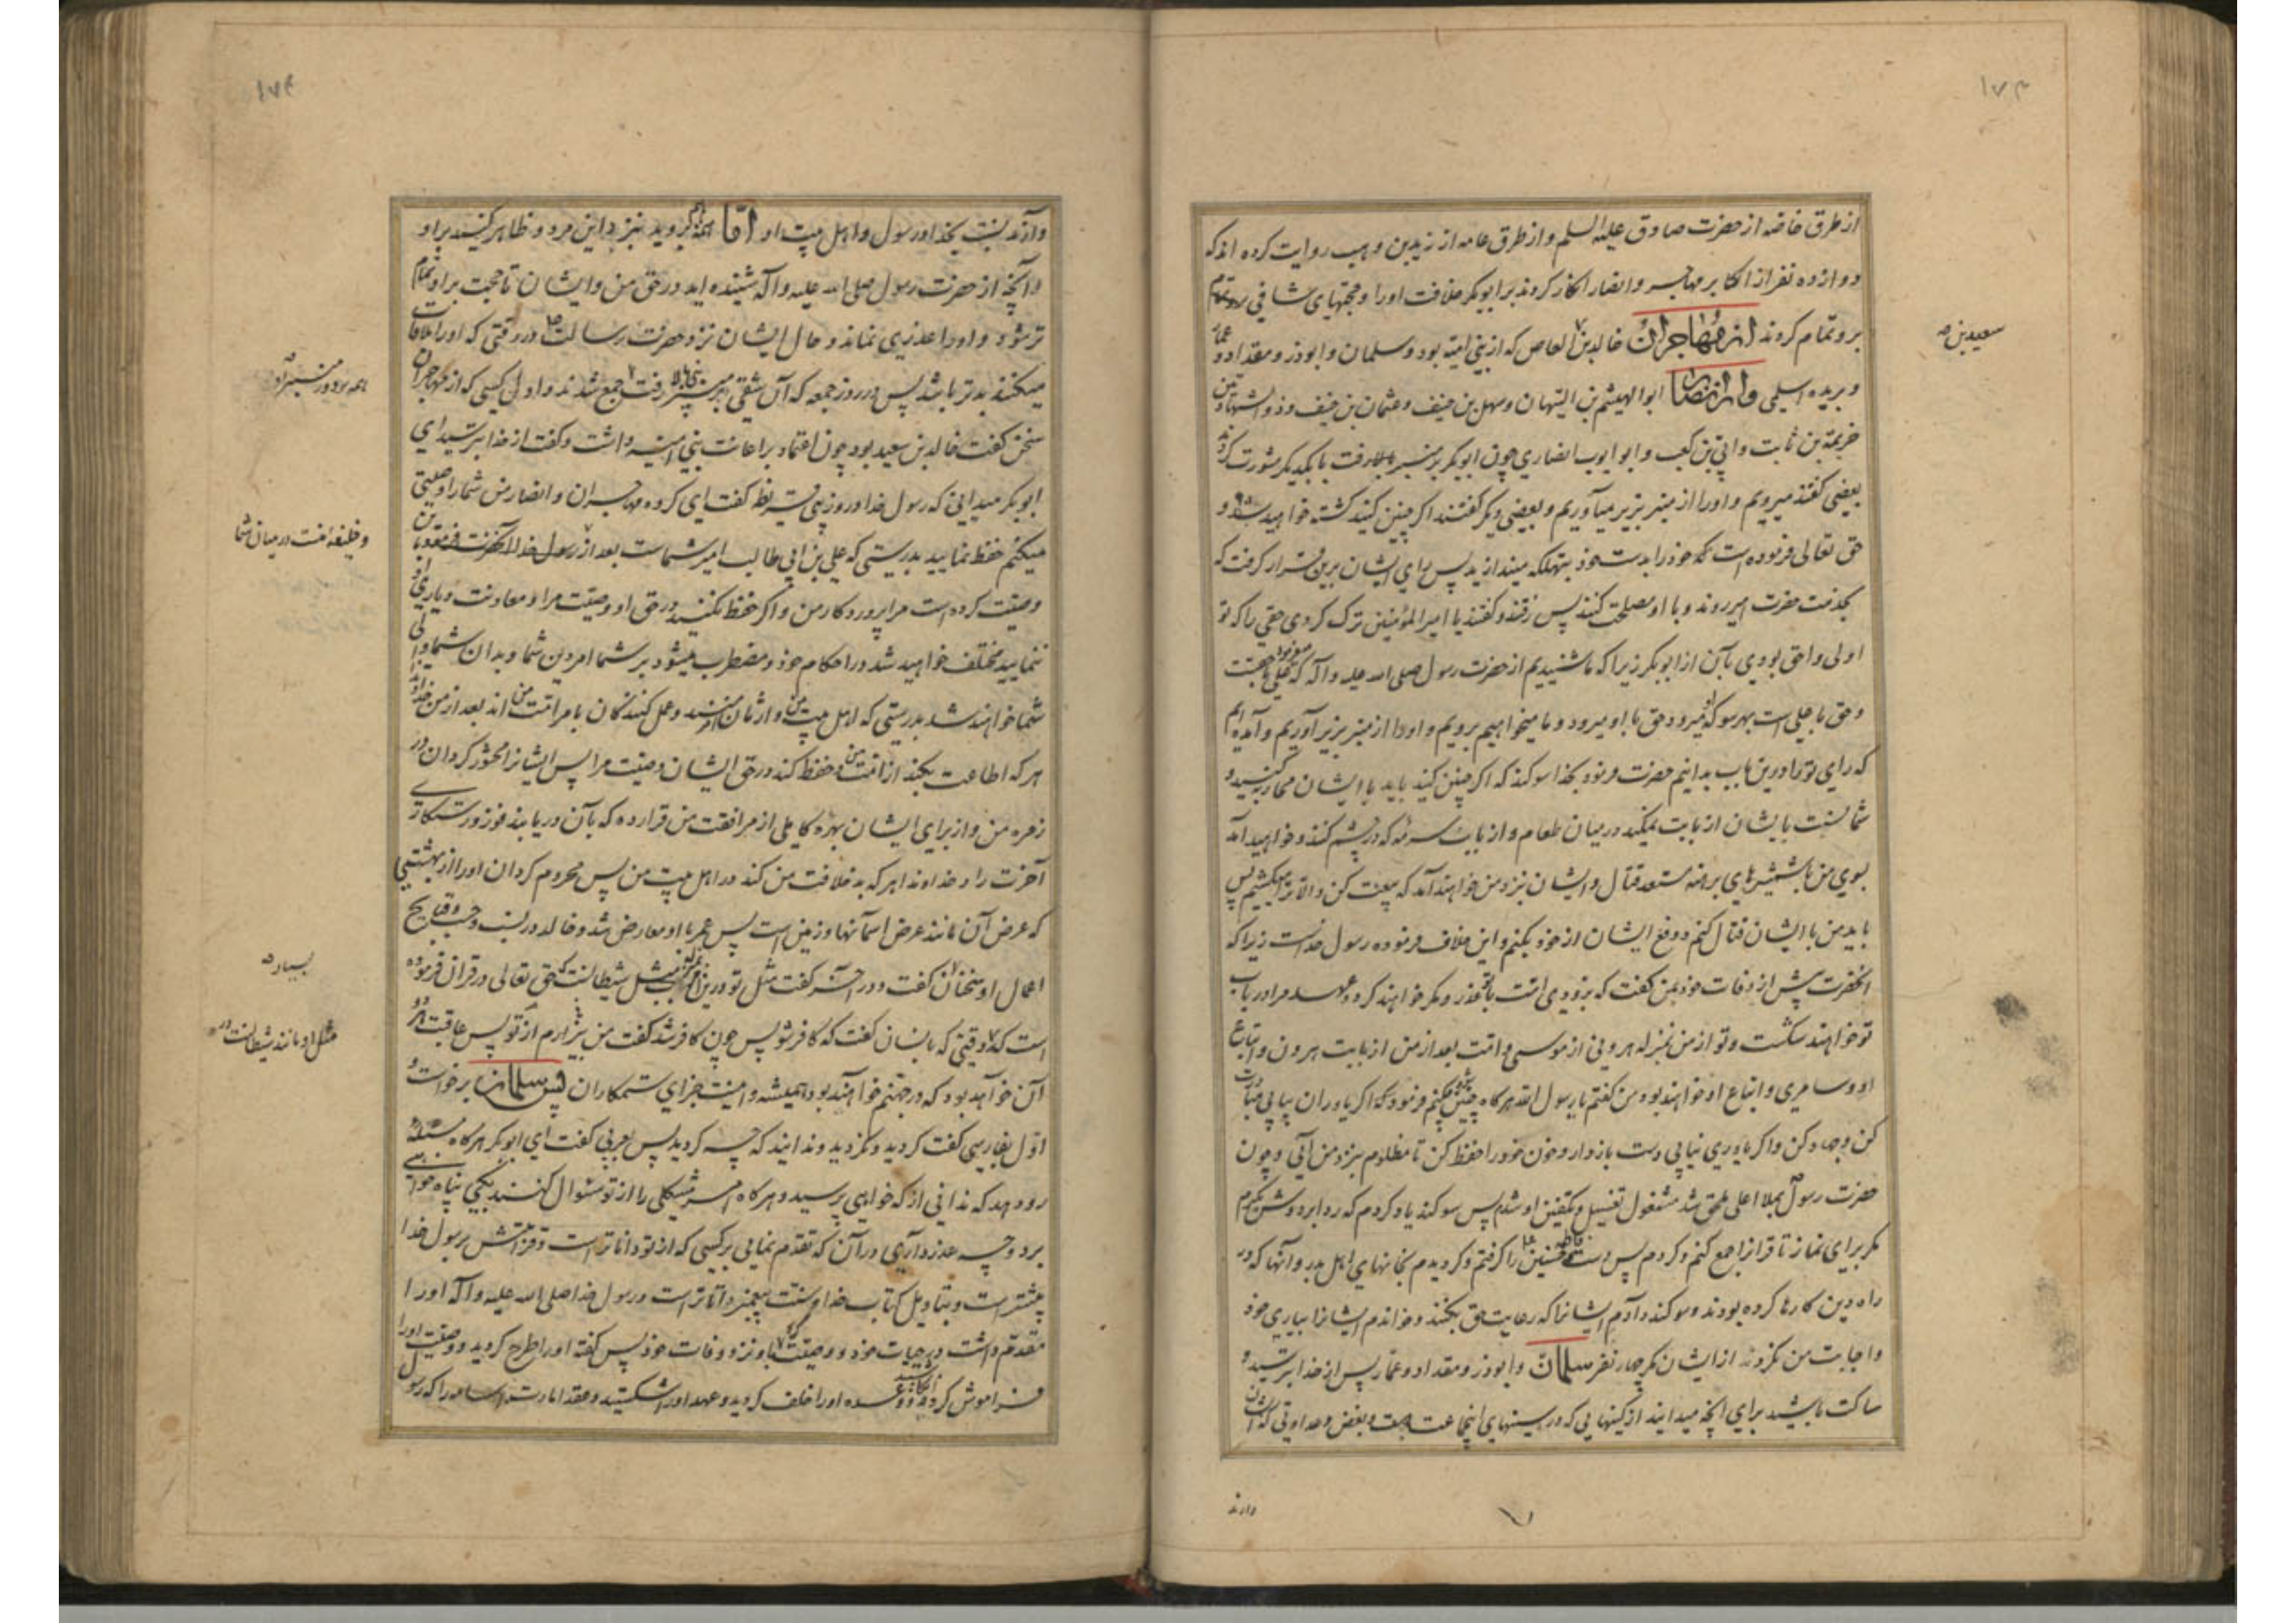 ۱۷۳
از طرق خاصه از حضرت صادق علیه السلم و از طرق عامه از زید بن وهب روایت کرده اند که
دوازده نفر از اکابر مهاجر و انصار انکار کردند بر ابوبکر خلافت او را و حجتهای شافی
برو تمام کردند از مهاجران خالد بن العاص که از بنی امیه بود و سلمان و ابوذر و مقداد و عمار
سعید بن
و بریده اسلمی و از انصار ابو الهیثم بن التیهان و سهل بن حنیف و عثمان بن حنیف و ذو الشهادتین
خزیمة بن ثابت و ابی بن کعب و ابو ایوب انصاری چون ابوبکر بر منبر بالا رفت با یکدیگر مشورت کردند
بعضی گفتند میرویم و او را از منبر بزیر میآوریم و بعضی دیگر گفتند اگر چنین کنید کشته خواهید شد و
حق تعالی فرموده است که خود را بدست خود بتهلکه میندازید پس رای ایشان برین قرار گرفت که
بخدمت حضرت امیر روند و با او مصلحت کنند پس رفتند و گفتند یا امیر المؤمنین ترک کردی حقی را که تو
اولی و احق بودی بآن از ابوبکر زیرا که ما شنیدیم از حضرت رسول صلی الله علیه و آله که میفرمود علی با حقست
و حق با علی است بهر سو که میرود حق با او میرود و ما میخواهیم برویم و او را از منبر بزیر آوریم و آمده ایم
که رای تو را درین باب بدانیم حضرت فرمود بخدا سوکند که اگر چنین کنید باید با ایشان محاربه کنید و
شما نسبت بایشان از بابت نمکید در میان طعام و از بابت سرمه که در چشم کنند و خواهید آمد
بسوی من با شمشیرهای برهنه مستعد قتال و ایشان نزد من خواهند آمد که بیعت کن و الا ترا میکشیم پس
باید من با ایشان قتال کنم و دفع ایشان از خود بکنم و این خلاف فرموده رسول خداست زیرا که
انحضرت پیش از وفات خود بمن گفت که بزودی امت با تو غدر و مکر خواهند کرد و عهد مرا در باب
تو خواهند شکست و تو از من بمنزله هرونی از موسی و امت بعد از من از بابت هرون و اتباع
او و سامری و اتباع او خواهند بود من گفتم یا رسول الله هرگاه چنین شود چکنم فرمود که اگر یاوران بیابی مبادرت
کن و جهاد کن و اگر یاوری نیابی دست بازدار و خون خود را حفظ کن تا مظلوم بنزد من آئی و چون
حضرت رسول بملا اعلی ملحق شد مشغول تغسیل و تکفین او شدم پس سوکند یاد کردم که ردا بر دوش نگیرم
مگر برای نماز تا قرانرا جمع کنم و کردم پس دست فاطمه و حسنین را گرفتم و گردیدم بخانهای اهل بدر و آنها که در
راه دین کارها کرده بودند و سوکند دادم ایشانرا که رعایت حق بکنند و خواندم ایشانرا بیاری خود
و اجابت من نکردند از ایشان مگر چهار نفر سلمان و ابوذر و مقداد و عمار پس از خدا بترسید و
ساکت باشید برای انچه میدانید از کینهایی که در سینهای اینجماعت هست و بغض و عداوتی که ایشان
دارند
۱۷۴
دارند نسبت بخدا و رسول و اهل بیت او اما همه بروید بنزد این مرد و ظاهر کنید براو
انچه از حضرت رسول صلی الله علیه و آله شنیده اید در حق من و ایشان تا حجت براو تمام
تر شود و او را عذری نماند و حال ایشان نزد حضرت رسالت در وقتی که او را ملاقات
میکنند بدتر باشد پس در روز جمعه که آن شقی بمنبر بالا رفت جمع شدند و اول کسی که از مهاجران
همه بر دور منبر
سخن گفت خالد بن سعید بود چون اعتماد بر اعانت بنی امیه داشت و گفت از خدا بترس ای
ابوبکر میدانی که رسول خدا در روز بنی قریظه گفت ای گروه مهاجران و انصار من شما را وصیتی
میکنم حفظ نمایید بدرستی که علی بن ابی طالب امیر شماست بعد از من
و خلیفهٔ منست در میان شما
وصیت کرده است مرا پروردگار من و اگر حفظ نکنید در حق او وصیت مرا و معاونت و یاری او
ننمایید مختلف خواهید شد در احکام خود و مضطرب میشود بر شما امر دین شما و بدان شما والی
شما خواهند شد بدرستی که اهل بیت من وارثان امر منند و عمل کنندگان بامر امت من اند بعد از من خداوندا
هر که اطاعت بکند از امت من و حفظ کند در حق ایشان وصیت مرا پس ایشانرا محشور گردان در
زمره من و از برای ایشان بهره کاملی از مرافقت من قرار ده که بآن دریابند فوز و رستگاری
آخرت را و خداوندا هر که بد خلافت من کند در اهل بیت من پس محروم گردان او را از بهشتی
که عرض آن مانند عرض آسمانها و زمین است پس عمر با او معارض شد و خالد در نسب و حسب و قبایح
اعمال او سخنان گفت و در آخر گفت مثل تو درین امر مثل شیطانست که حق تعالی در قران فرموده
بسیار
است که وقتی که بانسان گفت که کافر شو پس چون کافر شد گفت من بیزارم از تو پس عاقبت هر دو
مثل او مانند شیطانست در
آن خواهد بود که در جهنم خواهند بود همیشه و اینست جزای ستمکاران پس سلمان برخواست و
اول بفارسی گفت کردید و نکردید و ندانید که چه کردید پس بعربی گفت ای ابوبکر هرگاه مسئلهٔ
رو دهد که ندانی از که خواهی پرسید و هرگاه امر مشکلی را از تو سئوال کنند بکی پناه خواهی
برد و چه عذر داری در آن که تقدم نمایی بر کسی که از تو داناتر است و قرابتش برسول خدا
بیشتر است و بتاویل کتاب خدا و سنت پیغمبر داناتر است و رسول خدا صلی الله علیه و آله او را
مقدم داشت در حیات خود و وصیت کرد باو نزد وفات خود پس گفته او را طرح کردید و وصیت او را
فراموش کردید و وعده او را خلف کردید و عهد او را شکستید و عقد امارت اسامه را که رسول